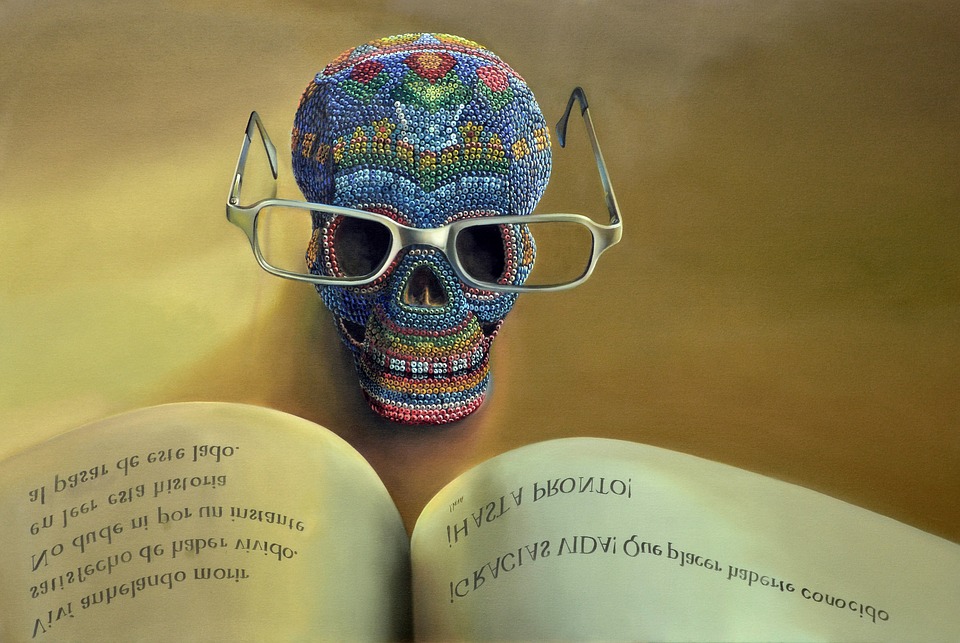 Viví anhelando morir
satisfecho de haber vivido.
No dude ni por un instante
en leer esta historia
al pasar de este lado.
¡GRACIAS VIDA! Que placer haberte conocido
¡HASTA PRONTO!